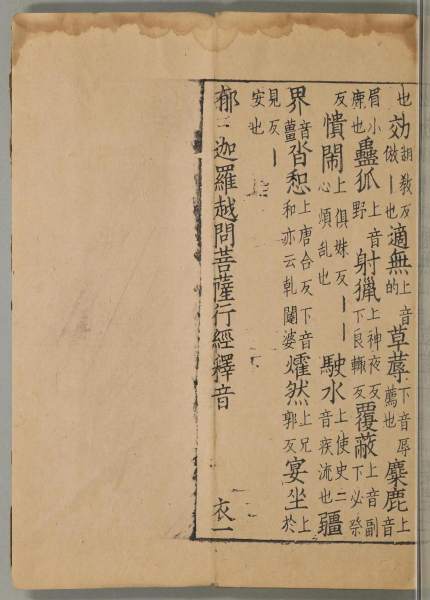 也効胡教反倣丨也適無上音的草蓐下音辱薦也麋鹿上音
眉小鹿也蠱狐上音野射獵上神夜反下良輒反覆蔽上音副下必祭
反憒閙上俱妹反丨丨心煩乱也駛水上使史二音疾流也疆
界音薑沓惒上唐合反下音和亦云乹闥婆㸌然上兄郭反宴坐上於
見反丨安也
郁迦羅越問菩薩行經釋音 衣一